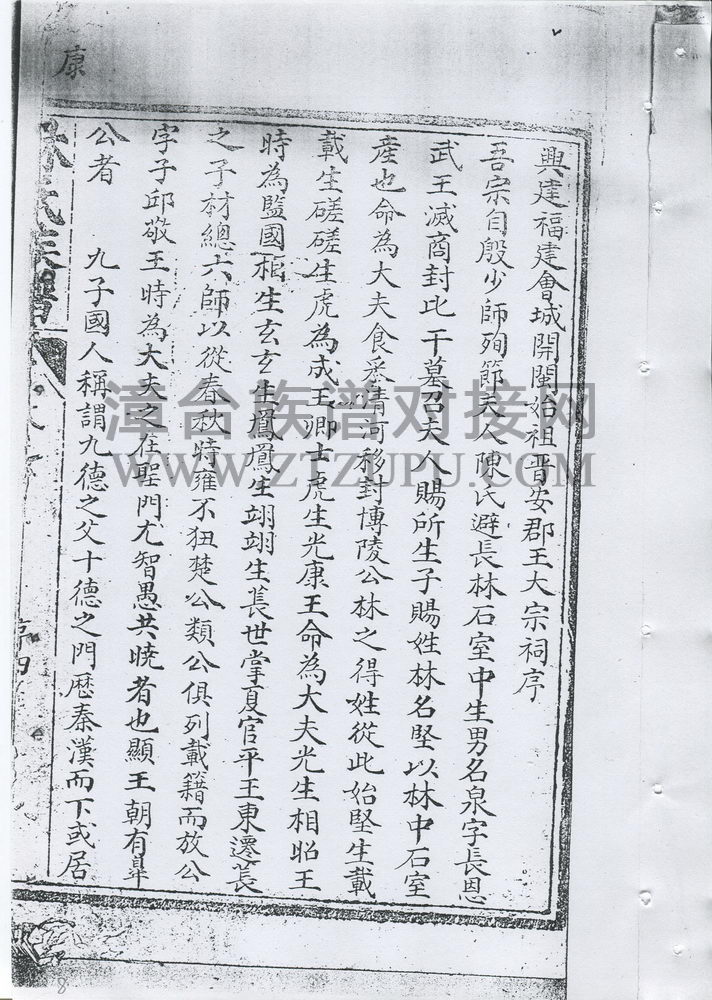 興建福建會城開閩始祖晋安郡王大宗祠序
吾宗自殷少師殉節夫人陳氏避長林石室中生男名泉字長恩
武王滅商封比干墓召夫人賜所生子賜姓林名堅以林中石室
產也命為大夫食采清河移封博陵公林之得姓從此始堅生載
載生磋磋生虎為成王卿士虎生光康王命為大夫光生相昭王
時為監國相生玄玄生鳳鳳生翊翊生萇世掌夏官平王東遷萇
之子材總六師以從春秋特雍不狃楚公類公俱列載籍而放公
字子邱敬王時為大夫之在聖門尤智愚共曉者也顯王朝有皐
公者 九子國人稱謂九德之父十德之門歷秦漢而下或居
林氏族譜
序四
康
8
漳台族谱对接网
WWW.ZTZUPU.COM